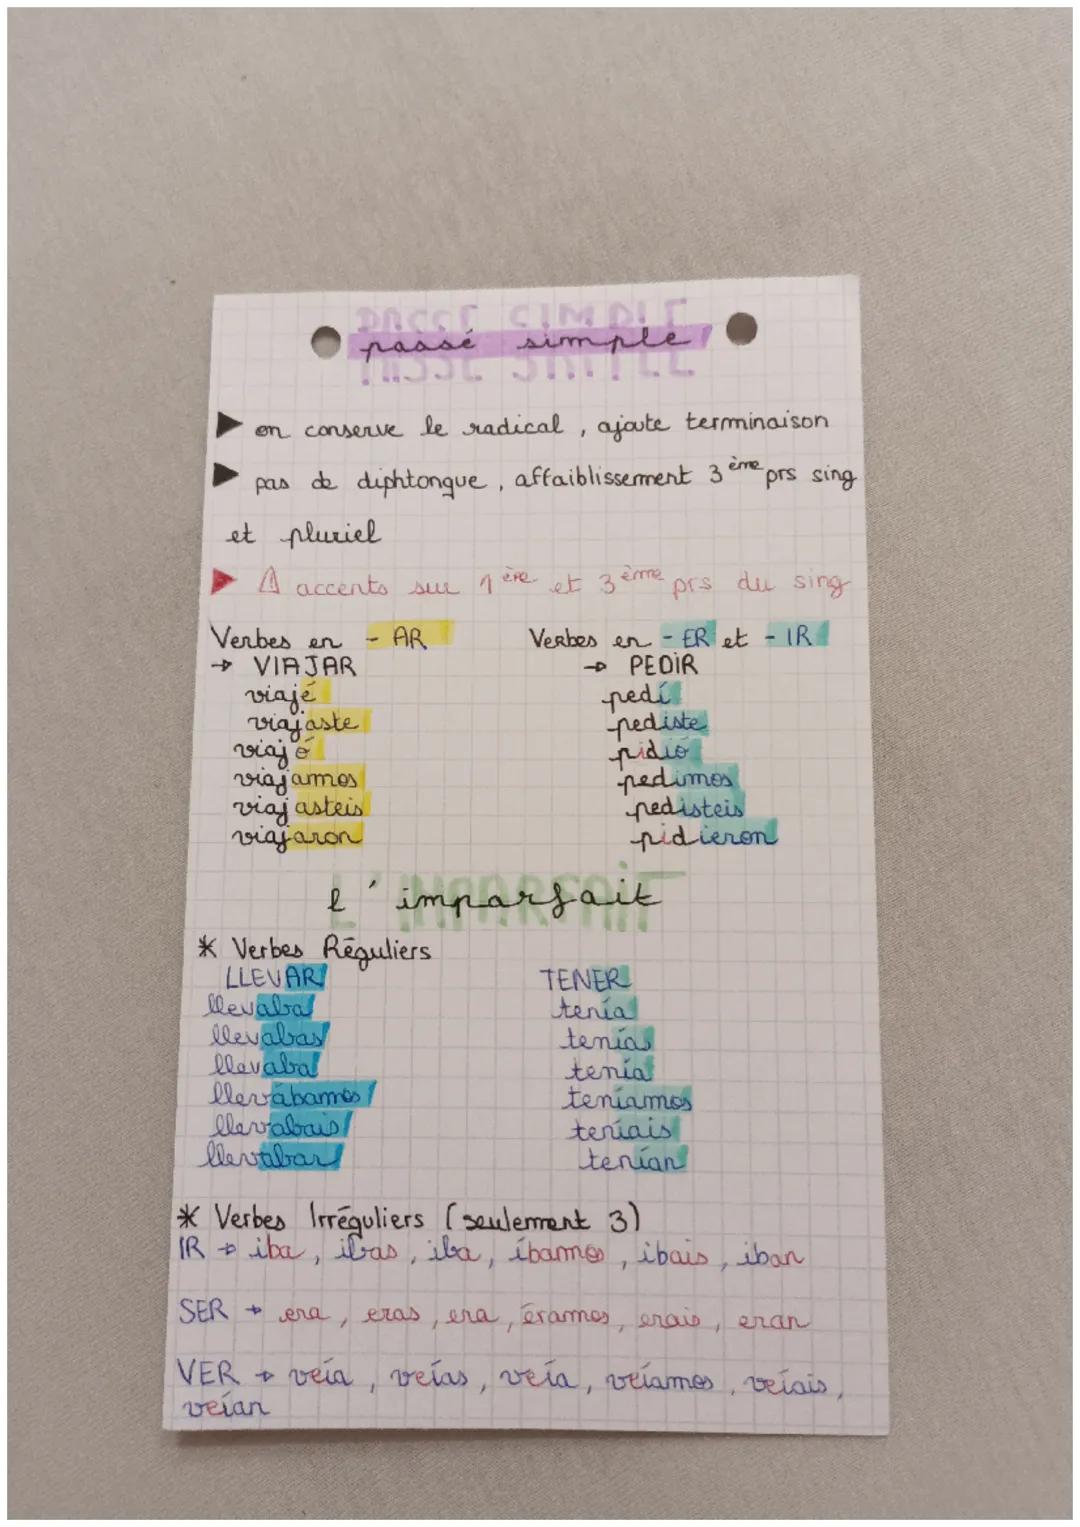 PASSE SIMPLE
passé simple
on conserve le radical, ajoute terminaison
pas de diphtongue, affaiblissement 3ème prs sing
et pluriel
⚠ accents sur 1ère et 3ème prs du sing
Verbes en -AR
→ VIAJAR
viajé
viajaste
viajó
viajamos
viajasteis
viajaron
Verbes en -ER et -IR
→ PEDIR
pedí
pediste
pidió
pedimos
pedisteis
pidieron
L'IMPARFAIT
l'imparfait
* Verbes Réguliers
LLEVAR
llevaba
llevabas
llevaba
llevábamos
llevabais
llevaban
TENER
tenía
tenías
tenía
teníamos
teníais
tenían
* Verbes Irréguliers (seulement 3)
IR → iba, ibas, iba, íbamos, ibais, iban
SER → era, eras, era, éramos, erais, eran
VER → veía, veías, veía, veíamos, veíais,
veían